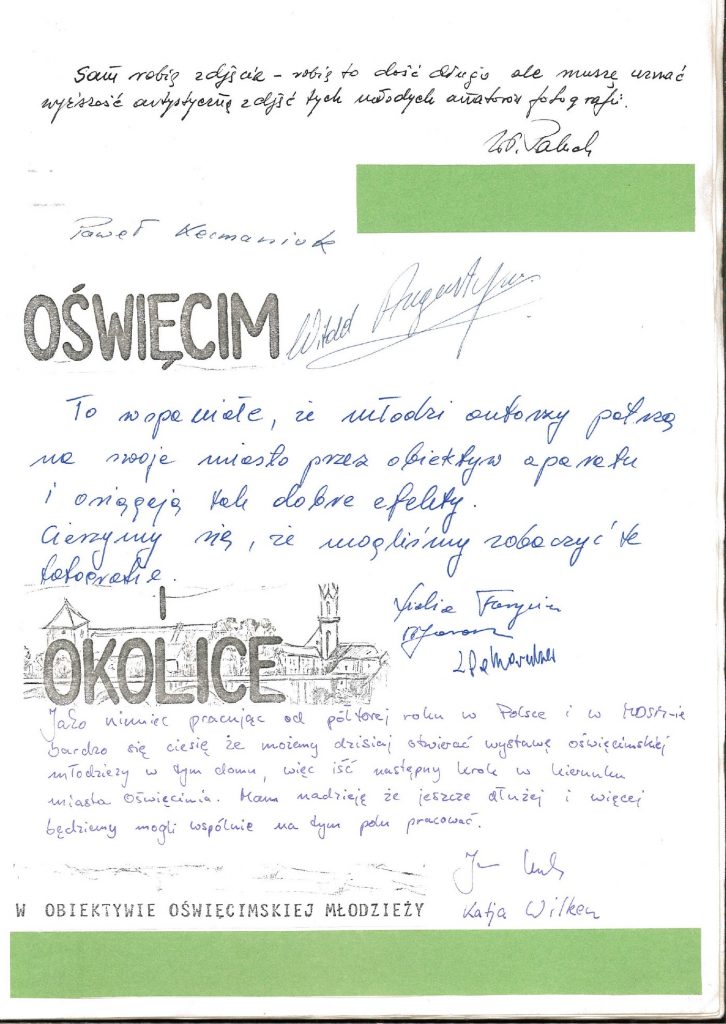 Sam robię zdjęcia – robię to dość długo ale muszę uznać
wyższość artystyczną zdjęć tych młodych amatorów fotografii.
Paweł
OŚWIĘCIM
Witold
To wspaniałe, że młodzi autorzy patrzą
na swoje miasto przez obiektyw aparatu
i osiągają tak dobre efekty.
Cieszymy się, że mogliśmy zobaczyć te
fotografie.
I
OKOLICE
Jako niemiec pracując od półtorej roku w Polsce i w MDSM-ie
bardzo się ciesię że możemy dzisiaj otwierać wystawę oświęcimskiej
młodzieży w tym domu, więc iść następny krok w kierunku
miasta Oświęcimia. Mam nadzieję że jeszcze dłużej i więcej
będziemy mogli wspólnie na tym polu pracować.
Katja Wilken
W OBIEKTYWIE OŚWIĘCIMSKIEJ MŁODZIEŻY